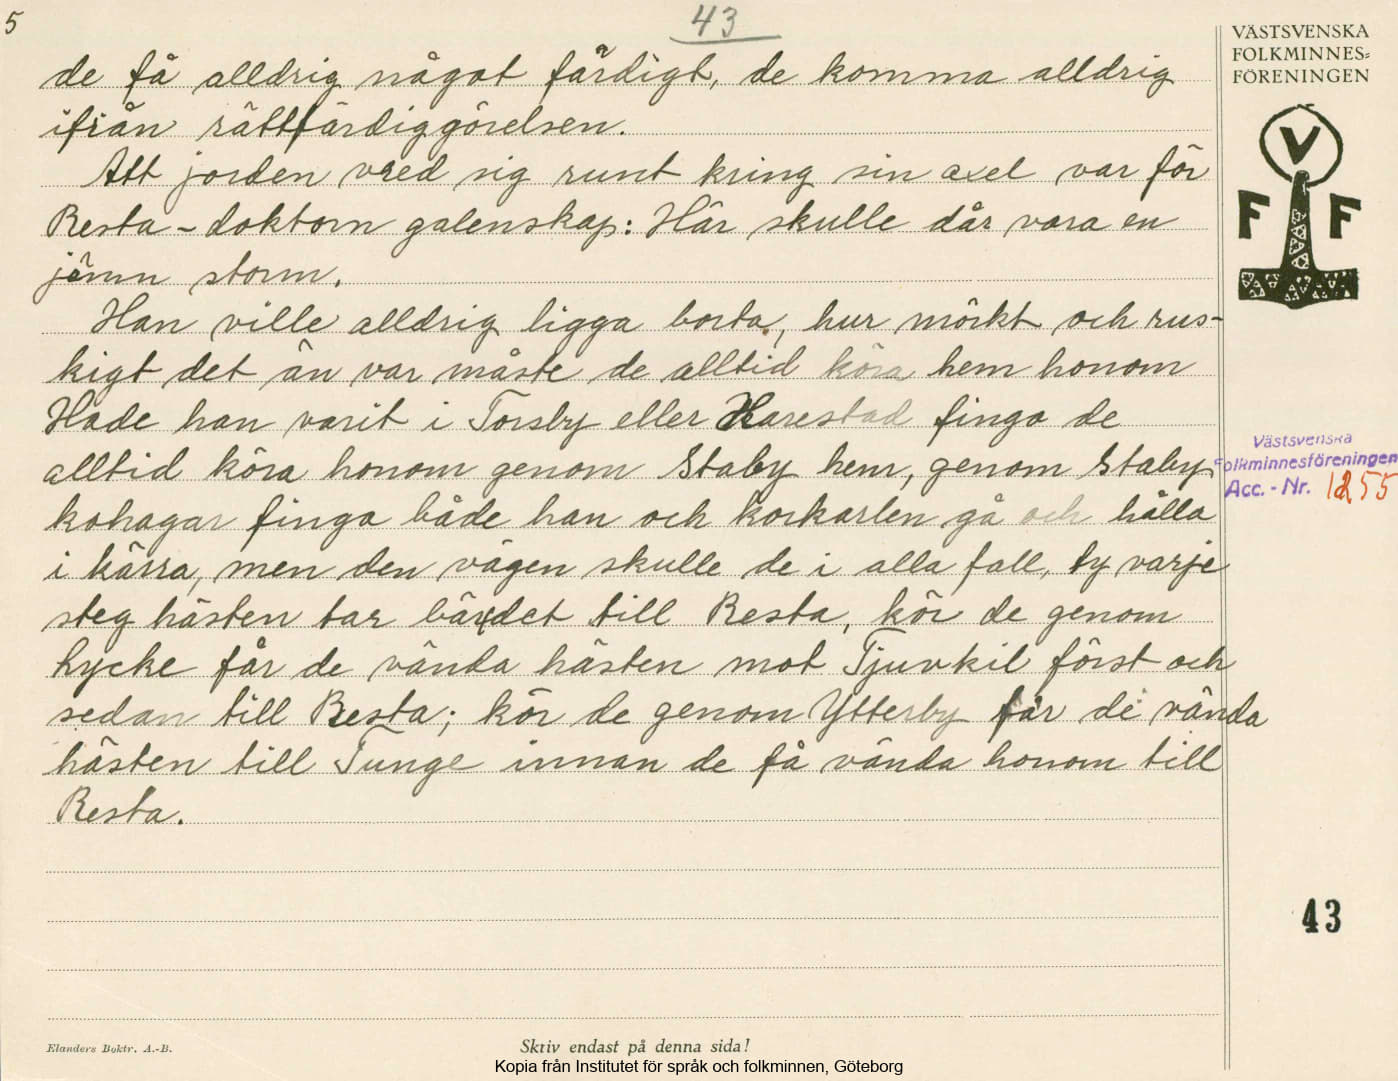 5
43
VÄSTSVENSKA
FOLKMINNES=
FÖRENINGEN
de få alldrig något färdigt, de komma alldrig
ifrån rättfärdiggörelsen.
Att jorden vred sig runt kring sin axel var för
Resta-doktorn galenskap: Här skulle dår vara en
jämn storm.
V
F F
Han ville alldrig ligga borta, hur mörkt och rus-
kigt det än var måste de alltid köra hem honom
Hade han varit i Torsby eller Harestad fingo de
alltid köra honom genom Staby hem, genom Staby
kohagar fingo både han och korkarlen gå och hålla
i kärra, men den vägen skulle de i alla fall, ty varje
steg hästen tar bär det till Resta, kör de genom
Lycke får de vända hästen mot Tjuvkil först och
sedan till Resta; kör de genom Ytterby får de vända
hästen till Tunge innan de få vända honom till
Resta.
Västsvenska
Folkminnesföreningen
Acc. - Nr. 1255
43
Elanders Boktr. A.-B.
Skriv endast på denna sida!
Kopia från Institutet för språk och folkminnen, Göteborg